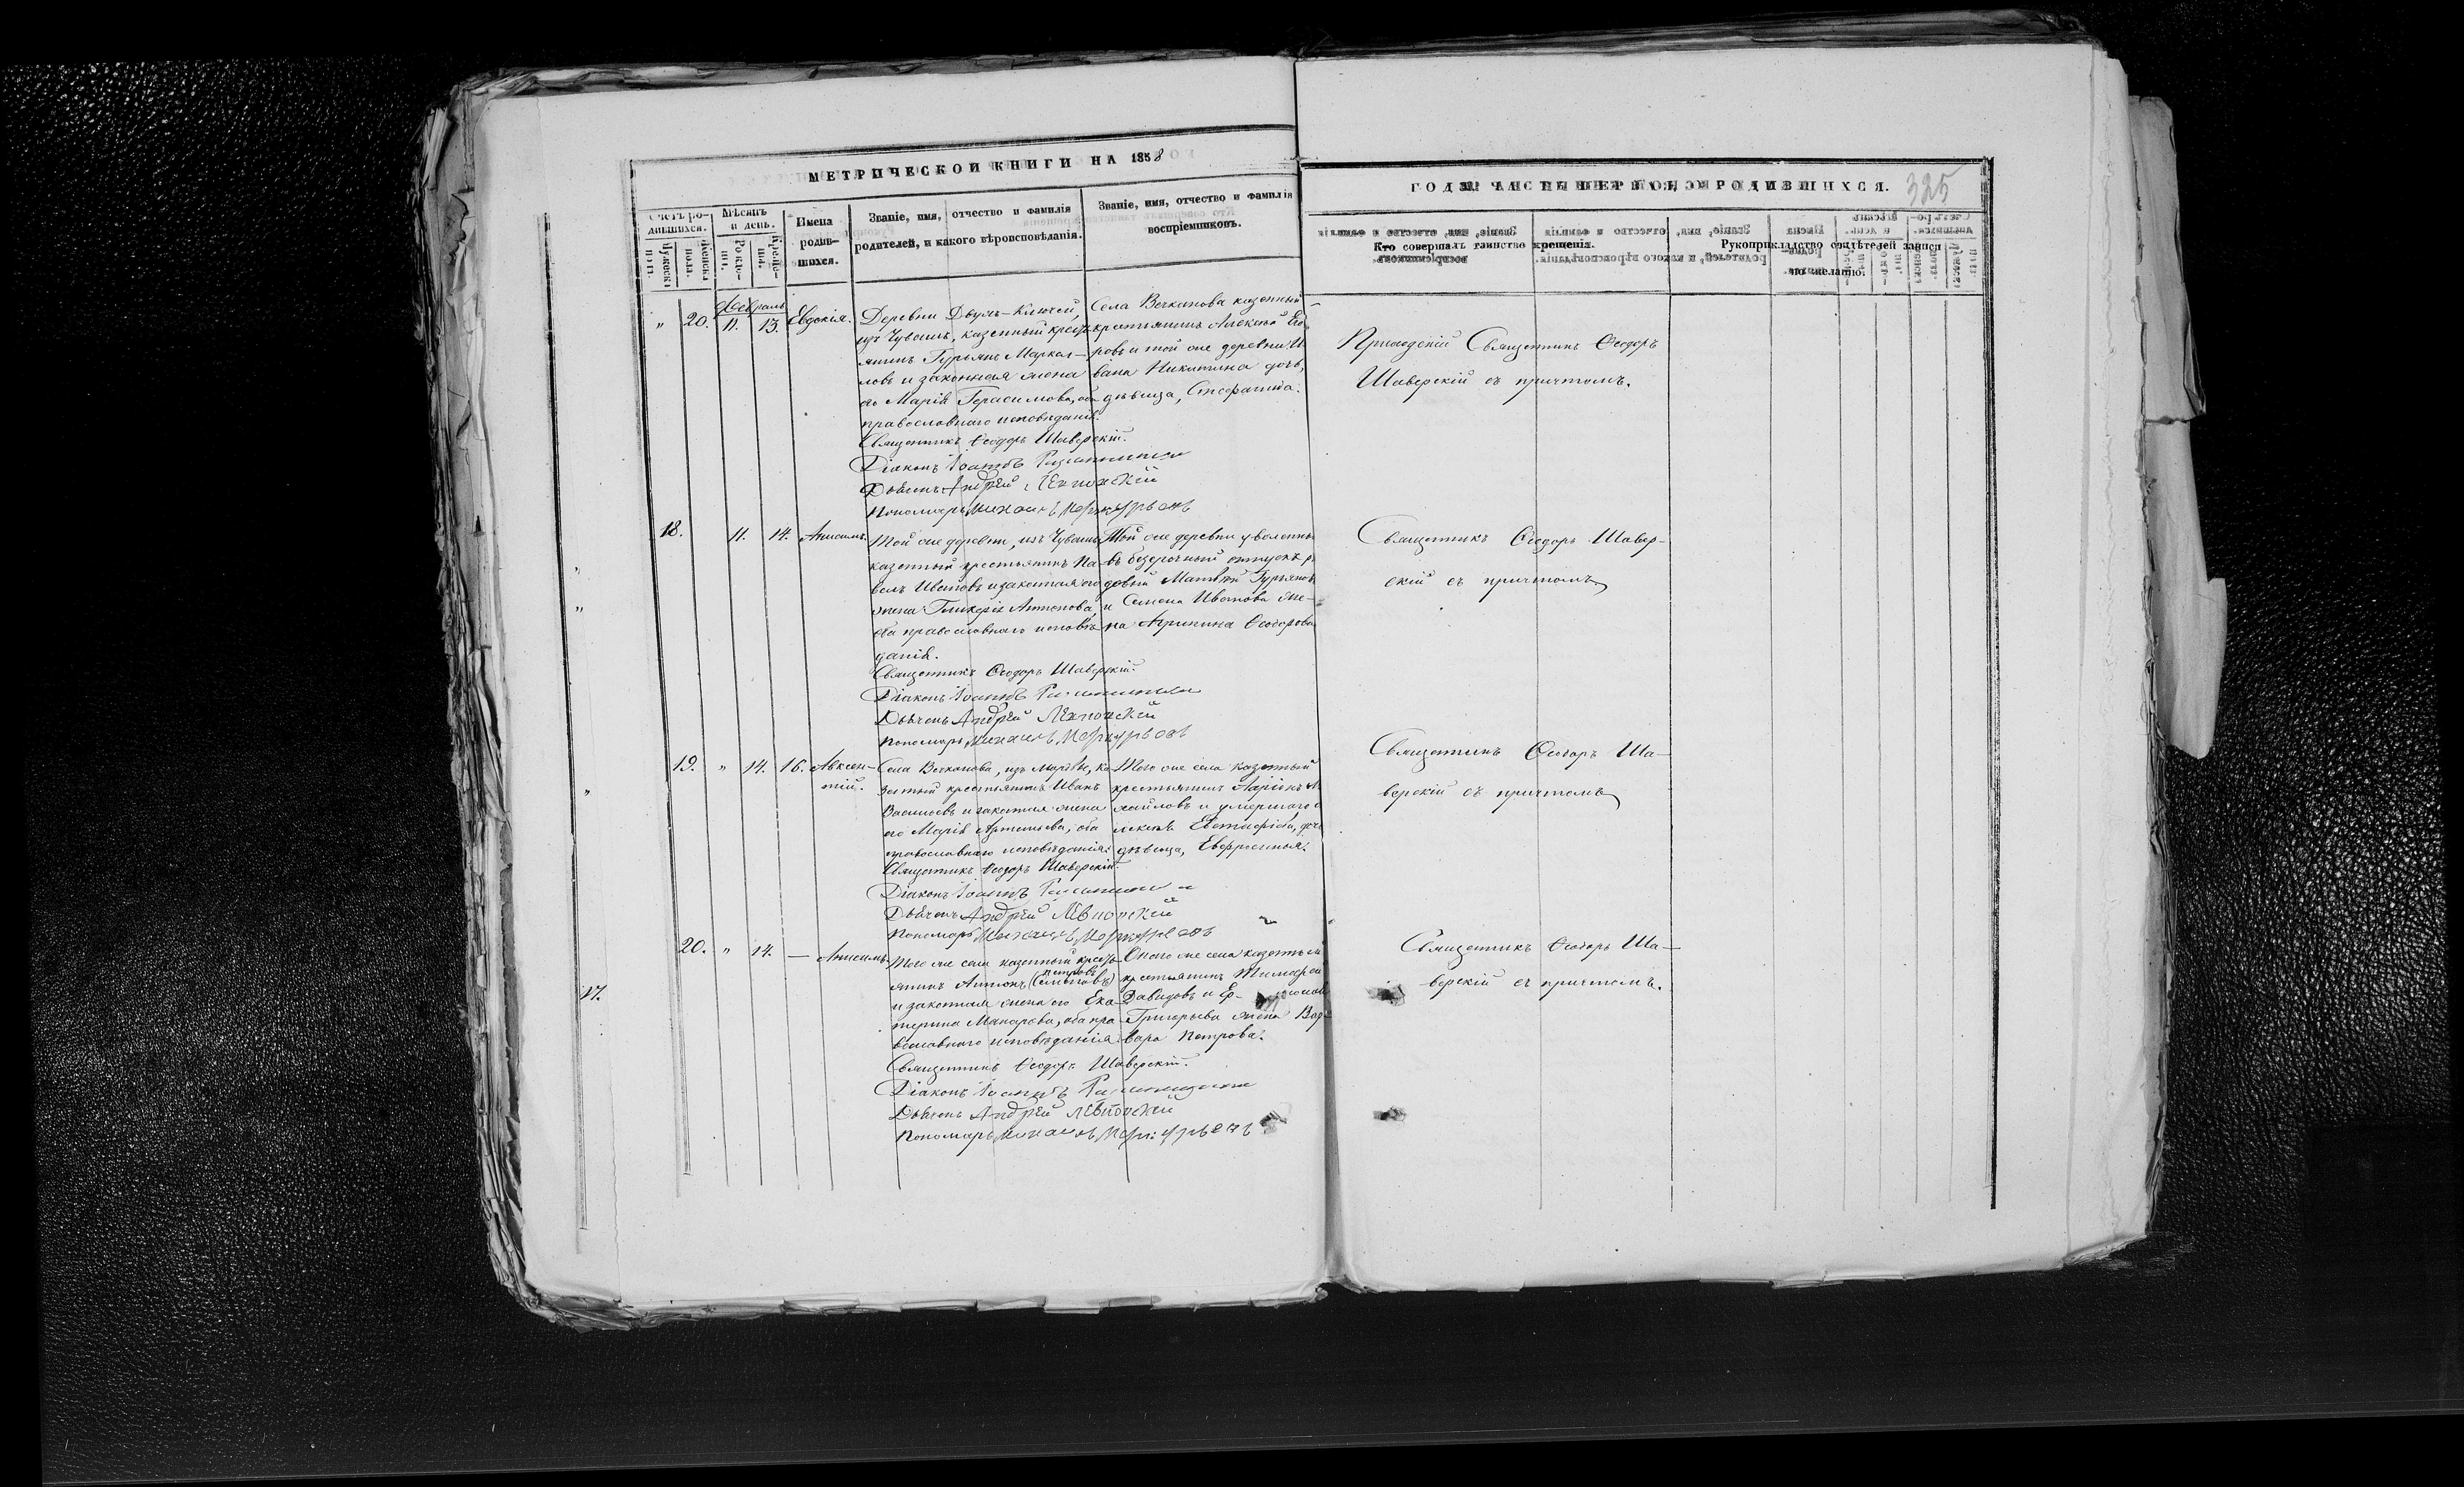 МЕТРИЧЕСКОЙ КНИГИ НА 1858
ГОДЪ ЧАСТЬ ПЕРВАЯ, О РОДИВШИХСЯ.
325
Счетъ родившихся.
Мѣсяцъ и день.
Имена родив-
шихся.
Званіе, имя, отчество и фамилія
родителей, и какого вѣроисповѣданія.
Званіе, имя, отчество и фамилія
воспріемниковъ.
Кто совершалъ таинство крещенія.
Рукоприкладство свидѣтелей записи
по желанію.
Февраль
" 20. 11. 13. Евдокія.
Деревни Двухъ-Ключей,
изъ Чувашъ, казенный кресть-
янинъ Гурьянъ Маркел-
ловъ и законная жена
его Марія Герасимова, оба
православнаго исповѣданія.
Священникъ Ѳеодоръ Шаверскій.
Діаконъ Іоаннъ
Дьячекъ Андрей
Пономарь Михаилъ Меркурьевъ
Села Вечканова казенный
крестьянинъ Алексѣй
ровъ и той же деревни И-
вана Никитина дочь,
дѣвица, Стефанида.
Приходскій Священникъ Ѳеодоръ
Шаверскій съ причтомъ.
18. 11. 14. Анисимъ.
Той же деревни, изъ Чувашъ
казенный крестьянинъ Па-
велъ Ивановъ и законная его
жена Гликерія Антонова,
оба православнаго исповѣ-
данія.
Священникъ Ѳеодоръ Шаверскій.
Діаконъ Іоаннъ
Дьячекъ Андрей
Пономарь Михаилъ Меркурьевъ
Той же деревни уволенны
въ безсрочный отпускъ
довой Матвѣй Гурьяновъ
и Семена Иванова же-
на Агрипина Ѳеодорова
Священникъ Ѳеодоръ Шавер-
скій съ причтомъ
19. " 14. 16. Авксен-
тій.
Села Вечканова, изъ Мордвы, ка-
зенный крестьянинъ Иванъ
Васильевъ и законная жена
его Марія Артемьева, оба
православнаго исповѣданія.
Священникъ Ѳеодоръ Шаверскій.
Діаконъ Іоаннъ
Дьячекъ Андрей
Пономарь Михаилъ Меркурьевъ
Того же села казенный
крестьянинъ Ларіонъ М
хайловъ и умершаго
лексѣя Евстафіева, дочь
дѣвица, Евфросинья.
Священникъ Ѳеодоръ Ша-
верскій съ причтомъ
20. " 14. — Анисимъ.
Того же села казенный кресть-
Петровъ
янинъ Антонъ (Семеновъ)
и законная жена его Ека-
терина Макарова, оба пра-
вославнаго исповѣданія.
Священникъ Ѳеодоръ Шаверскій.
Діаконъ Іоаннъ
Дьячекъ Андрей
Пономарь Михаилъ Меркурьевъ
Онаго же села казенный
крестьянинъ Тимофей
Давидовъ и
Григорьева жена Вар-
вара Петрова.
Священникъ Ѳеодоръ Ша-
верскій съ причтомъ.
17.